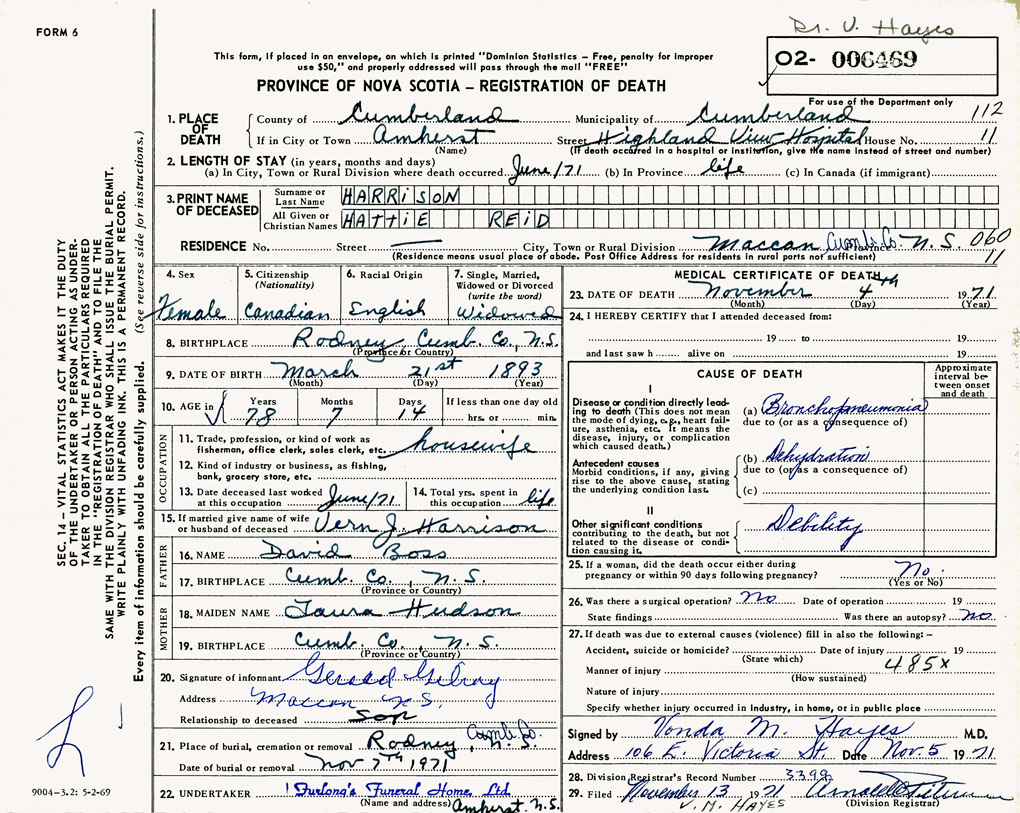 FORM 6
Dr. V. Hayes
This form, if placed in an envelope, on which is printed "Dominion Statistics – Free, penalty for improper
use $50," and properly addressed will pass through the mail "FREE"
02- 006469
PROVINCE OF NOVA SCOTIA – REGISTRATION OF DEATH
For use of the Department only
1. PLACE OF DEATH
County of Cumberland Municipality of Cumberland 112
If in City or Town Amherst Street Highland View Hospital House No. 11
(Name) (If death occurred in a hospital or institution, give the name instead of street and number)
2. LENGTH OF STAY (in years, months and days)
(a) In City, Town or Rural Division where death occurred June/71 (b) In Province life (c) In Canada (if immigrant)
3. PRINT NAME OF DECEASED
Surname or Last Name HARRISON
All Given or Christian Names HATTIE REID
RESIDENCE No. Street City, Town or Rural Division Maccan Cumb. Co. N.S. 060
(Residence means usual place of abode. Post Office Address for residents in rural parts not sufficient) 11
4. Sex Female
5. Citizenship (Nationality) Canadian
6. Racial Origin English
7. Single, Married, Widowed or Divorced (write the word) Widowed
8. BIRTHPLACE Rodney Cumb. Co., N.S.
(Province or Country)
9. DATE OF BIRTH March 21st 1893
(Month) (Day) (Year)
10. AGE in Years 78 Months 7 Days 14 If less than one day old
hrs. or min.
OCCUPATION
11. Trade, profession, or kind of work as
fisherman, office clerk, sales clerk, etc. housewife
12. Kind of industry or business, as fishing,
bank, grocery store, etc.
13. Date deceased last worked at this occupation June/71
14. Total yrs. spent in this occupation life
15. If married give name of wife
or husband of deceased Vern J. Harrison
FATHER
16. NAME David Boss
17. BIRTHPLACE Cumb. Co., N.S.
(Province or Country)
MOTHER
18. MAIDEN NAME Laura Hudson
19. BIRTHPLACE Cumb. Co., N.S.
(Province or Country)
20. Signature of informant Gerard Gilroy
Address Maccan N.S.
Relationship to deceased Son
21. Place of burial, cremation or removal Rodney, Cumb. Co. N.S.
Date of burial or removal Nov 7th 1971
22. UNDERTAKER Furlong's Funeral Home Ltd
(Name and address) Amherst, N.S.
MEDICAL CERTIFICATE OF DEATH
23. DATE OF DEATH November 4th 1971
(Month) (Day) (Year)
24. I HEREBY CERTIFY that I attended deceased from:
19 to 19
and last saw h alive on 19
CAUSE OF DEATH
Approximate interval between onset and death
I
Disease or condition directly leading to death (This does not mean
the mode of dying, e.g., heart failure, asthenia, etc. It means the
disease, injury, or complication
which caused death.)
(a) Bronchopneumonia
due to (or as a consequence of)
Antecedent causes
Morbid conditions, if any, giving
rise to the above cause, stating
the underlying condition last.
(b) Dehydration
due to (or as a consequence of)
(c)
II
Other significant conditions
contributing to the death, but not
related to the disease or condition causing it.
Debility
25. If a woman, did the death occur either during
pregnancy or within 90 days following pregnancy? No.
(Yes or No)
26. Was there a surgical operation? No Date of operation 19
State findings Was there an autopsy? no
27. If death was due to external causes (violence) fill in also the following:–
Accident, suicide or homicide? Date of injury 19
(State which) 485X
Manner of injury
(How sustained)
Nature of injury
Specify whether injury occurred in industry, in home, or in public place
Signed by Vonda M. Hayes M.D.
Address 106 E. Victoria St. Date Nov. 5 1971
28. Division Registrar's Record Number 3399
29. Filed November 13 1971
V. M. HAYES (Division Registrar)
SEC. 14 – VITAL STATISTICS ACT MAKES IT THE DUTY
OF THE UNDERTAKER OR PERSON ACTING AS UNDER-
TAKER TO OBTAIN ALL THE PARTICULARS REQUIRED
IN THE "REGISTRATION OF DEATH" AND TO FILE THE
SAME WITH THE DIVISION REGISTRAR WHO SHALL ISSUE THE BURIAL PERMIT.
WRITE PLAINLY WITH UNFADING INK. THIS IS A PERMANENT RECORD.
Every item of information should be carefully supplied. (See reverse side for instructions.)
9004-3.2: 5-2-69